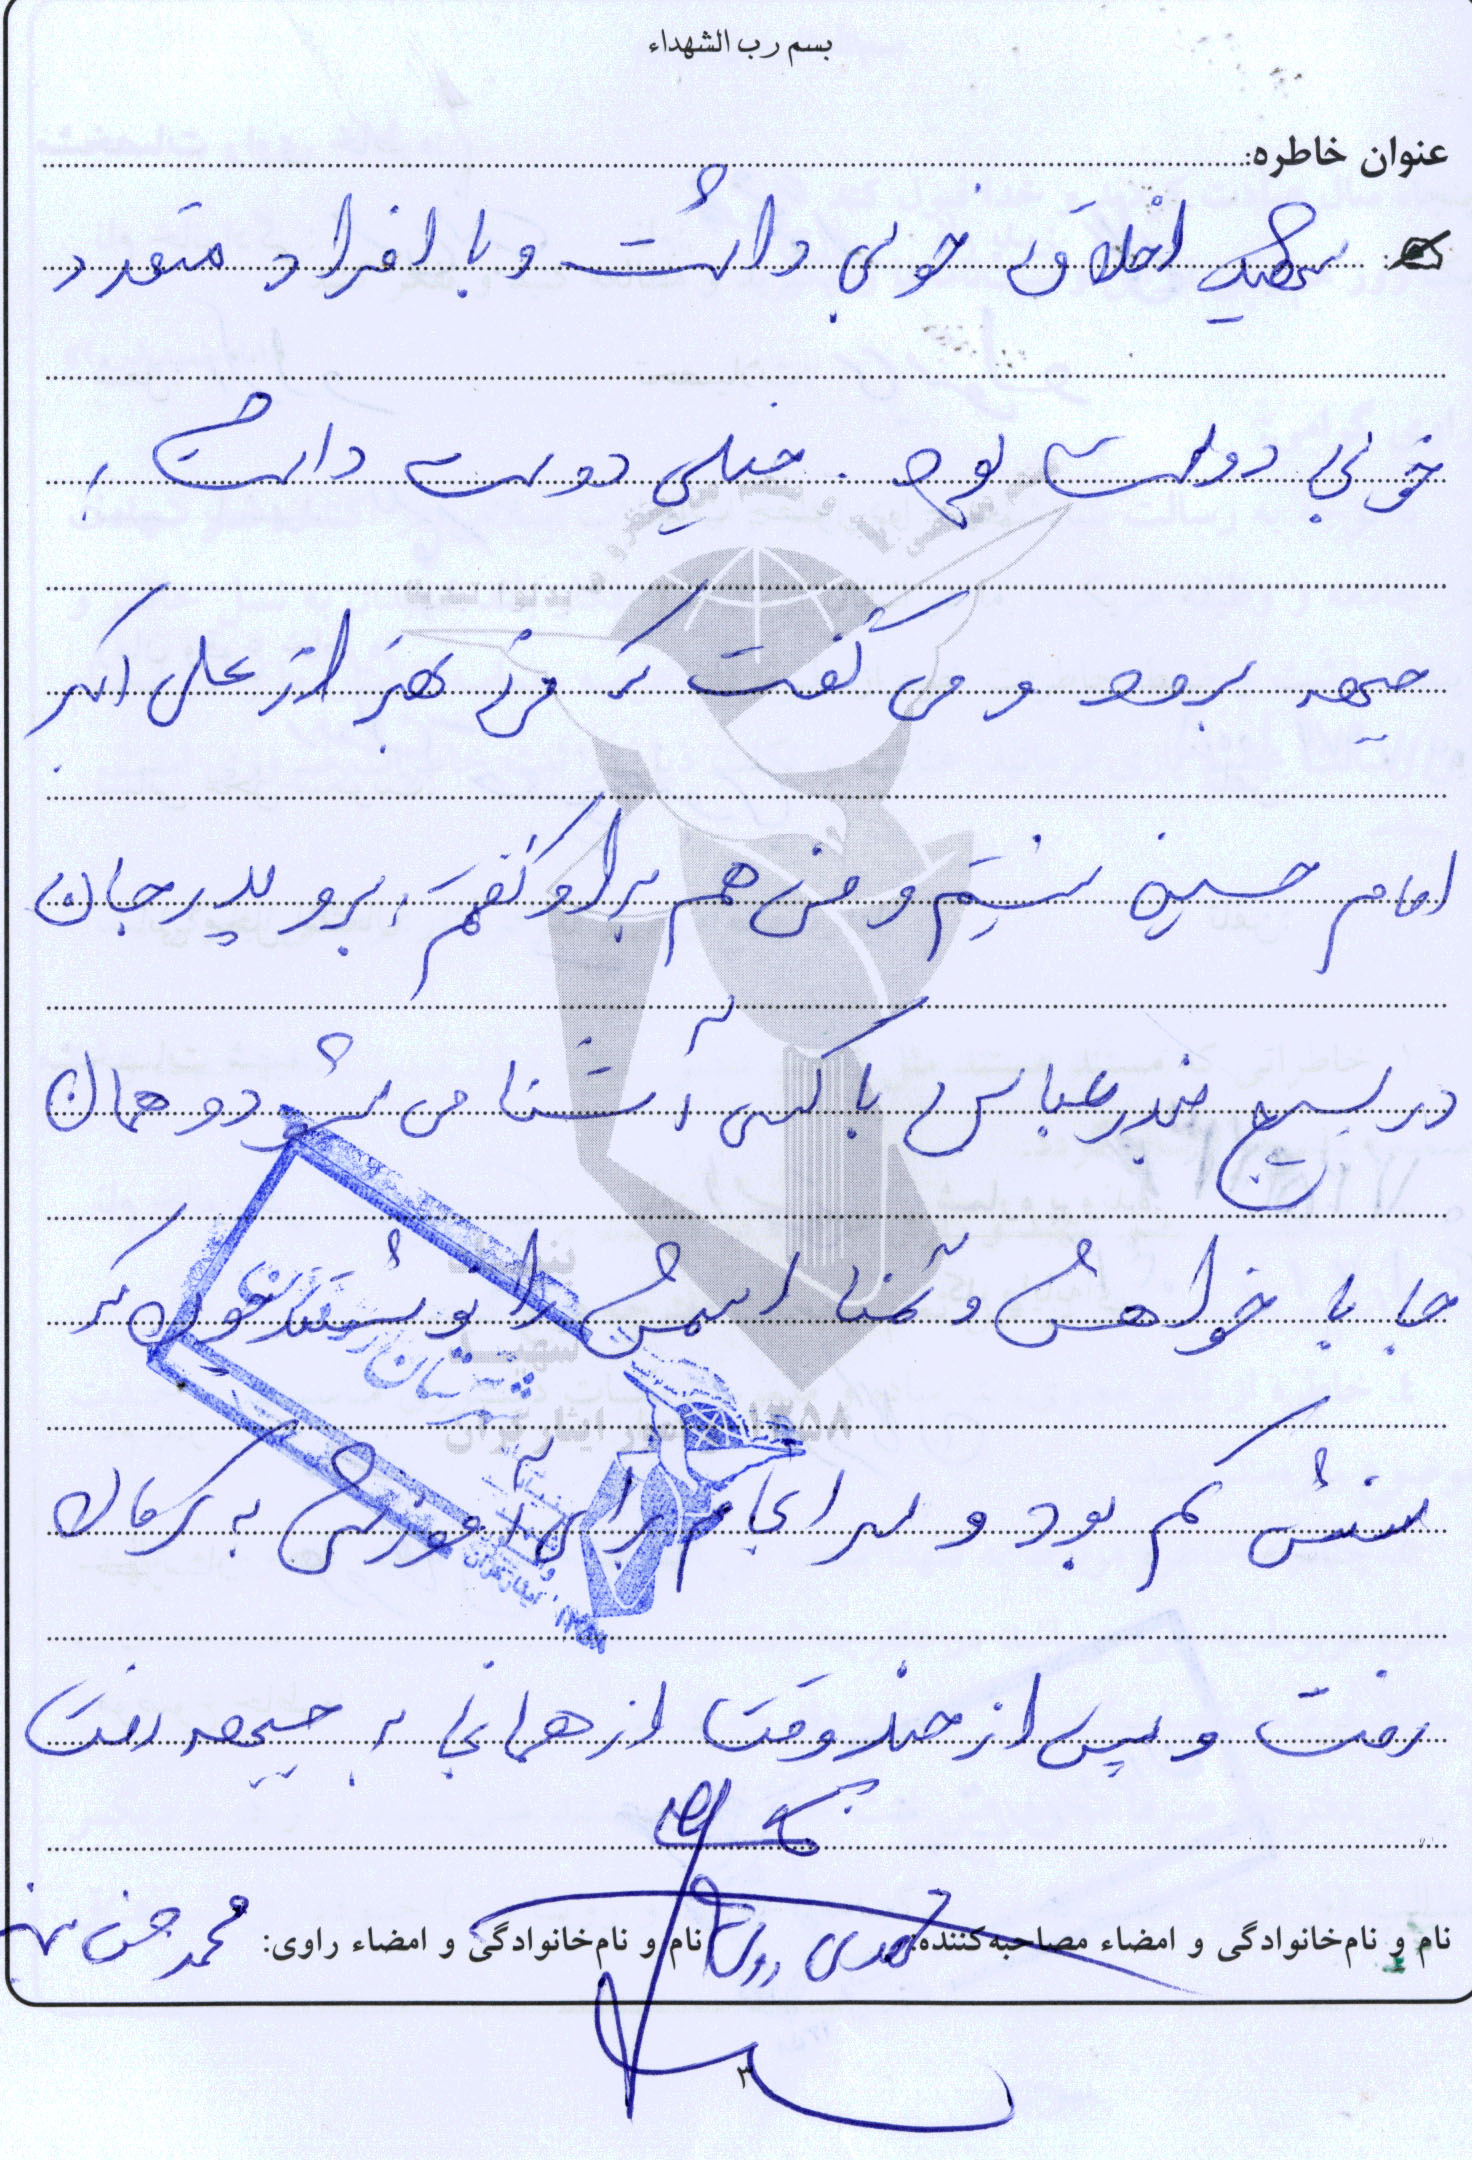 بسم رب الشهداء
عنوان خاطره:
شهید اخلاق خوبی داشت و با افراد متعدد
خوبی دوست بود . خیلی دوست داشت به
جبهه برود و می گفت که من بهتر از علی اکبر
امام حسین نیستم و من هم به او گفتم ، برو پدر جان
در بسیج بندرعباس با کسی آشنا می شود و همان
جا با خواهش و تمنا اسمش را نوشتند چون که
سنش کم بود و سرانجام برای آموزش به کرمان
رفت و پس از چند وقت از همانجا به جبهه رفت
نام و نام‌خانوادگی و امضاء مصاحبه‌کننده:
نام و نام‌خانوادگی و امضاء راوی: محمد حسن
۳